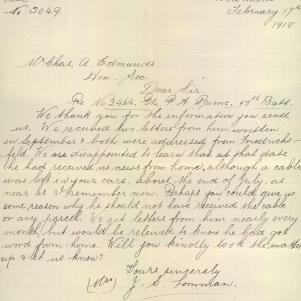 No 3049
February 17th
1918
Mr Chas. A. Edmunds
Hon. Sec.
Dear Sir
Re No 3464. P. A. 48th Batt.
We thank you for the information you send
us. We received two letters from him written
in September & both were addressed from Friedrichs-
feld. We are disappointed to learn that at that date
he had received no news from home, although a cable
was left in your care, about the end of July, as
near as I remember now. Perhaps you could give us
some reason why he should not have received the cable
or any parcel. We get letters from him nearly every
month, but would be relieved to know he had got
word from home. Will you kindly look the matter
up & let us know?
Yours sincerely
(Mrs) J. S.